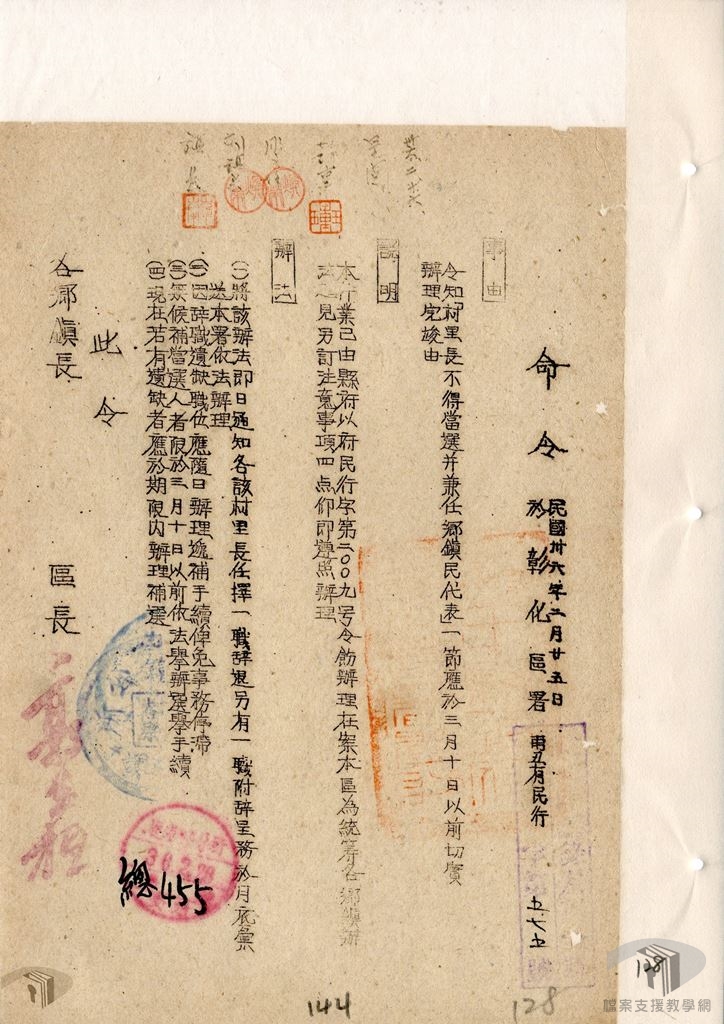 命令
民國卅六年二月廿五日
於彰化區署
事由
令知村里長不得當選并兼任鄉鎮民代表」一節應於三月十日以前切實
辦理完竣由
說明
本件業已由縣府以府民行字第二00九号令飭辦理在案本區為統籌各鄉鎮辦
法起見另訂注意事項四点仰即遵照辦理
辦法
(一)將該辦法即日通知各該村里長任擇一職辞退另有一職附辞呈務於月底彙
送本署依法辦理
(二)因辞職遺缺職位應隨日辦理遞補手續俾免事務停滯
(三)無候補當選人者限於三月十日以前依法舉辦選舉手續
(四)現在若有遺缺者應於期限內辦理補選
此令
各鄉鎮長
區長
總455
144
128
128
檔案支援教學網